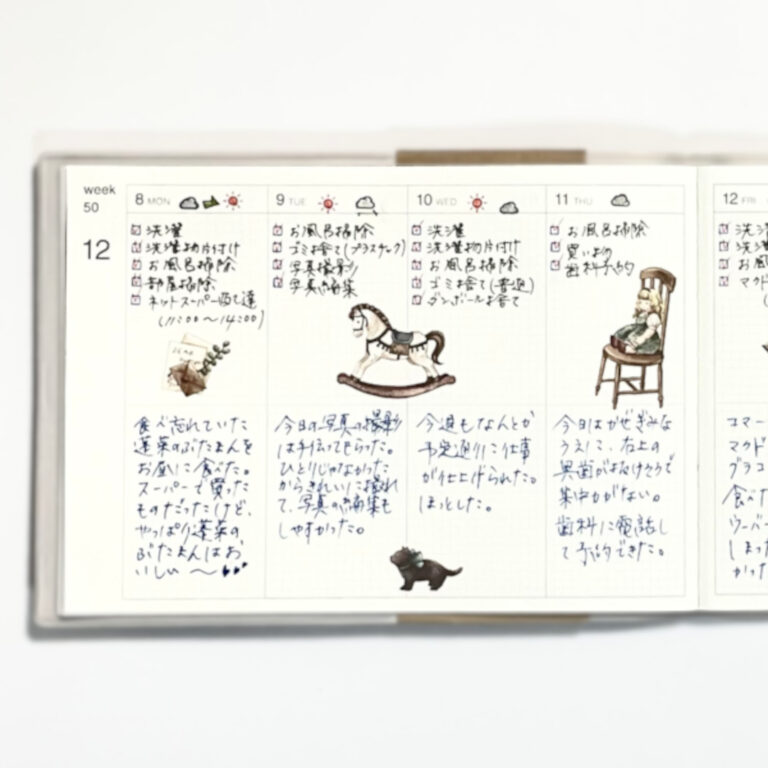 week
50
12
8 MON
洗濯
洗濯物片付け
お風呂掃除
部屋掃除
ネットスーパー
(11:00～14:00)
食べ忘れていた
蓬莱のぶたまんを
お昼に食べた。
スーパーで買った
ものだったけど、
やっぱり蓬莱の
ぶたまんはお
いしい〜
9 TUE
お風呂掃除
ゴミ捨て(プラスチック)
写真撮影
写真編集
今日の写真の撮影
は手伝ってもらった。
ひとりじゃなかった
からきれいに撮れ
て、写真の編集も
しやすかった。
10 WED
洗濯
洗濯物片付け
お風呂掃除
ゴミ捨て(普通)
ダンボール捨て
今週もなんとか
予定通りに仕事
が仕上げられた。
ほっとした。
11 THU
お風呂掃除
買い物
歯科予約
今日はかぜぎみな
うえに、右上の
奥歯が抜けそうで
集中力がない。
歯科に電話し
て予約できた。
12 FRI
洗
洗
お風
マク
コマー
マクド
グラコ
食べた
ウーバー
しまっ
かった